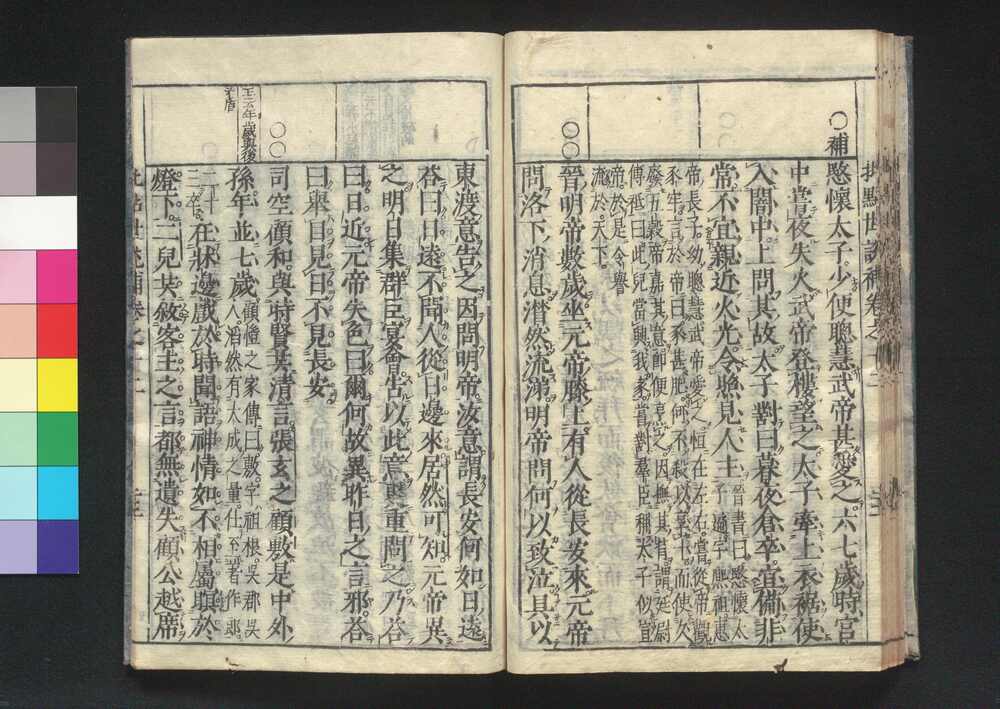 補
愍懷太子少便聰慧武帝甚愛之六七歲時宮
中嘗夜失火武帝登樓望之太子牽上衣裾使
入闇中上問其故太子對曰暮夜倉卒宜備非
常不宜親近火光令照見人主
晉書曰愍懷太
子遹字熙祖惠
帝長子幼聰慧武帝愛之恒在左右嘗從帝觀
豕牢言於帝曰豕甚肥何不殺以享士而使久
廢五穀帝嘉其意卽便烹之因撫其背謂廷尉
傅祗曰此兒當興我家嘗對羣臣稱太子似宣
帝於是令譽
流於天下
晉明帝數歲坐元帝膝上有人從長安來元帝
問洛下消息潸然流涕明帝問何以致泣具以
東渡意告之因問明帝汝意謂長安何如日遠
答曰日遠不聞人從日邊來居然可知元帝異
之明日集群臣宴會告以此意更重問之乃答
曰日近元帝失色曰爾何故異昨日之言邪答
曰舉目見日不見長安
司空顧和與時賢共清言張玄之顧敷是中外
孫年並七歲
顧愷之家傳曰敷字祖根吳郡吳
人滔然有大成之量仕至著作郎
二十
三卒
在牀邊戲於時聞語神情如不相屬瞑於
燈下二兒共敘客主之言都無遺失顧公越席